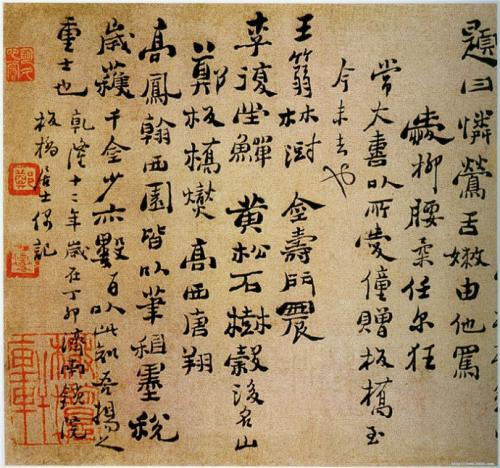 題曰憐鶯舌嫩由他罵
愛柳腰柔任尔狂
常大喜以所愛僮贈板橋至
今未去也
王篛林澍 金壽門農
李復堂鱓 黃松石樹穀後名山
鄭板橋燮 高西唐翔
高鳳翰西園皆以筆租墨稅
歲穫千金少亦數百以此知吾揚之
重士也
乾隆十二年歲在丁卯濟南鎖院
板橋居士偶記